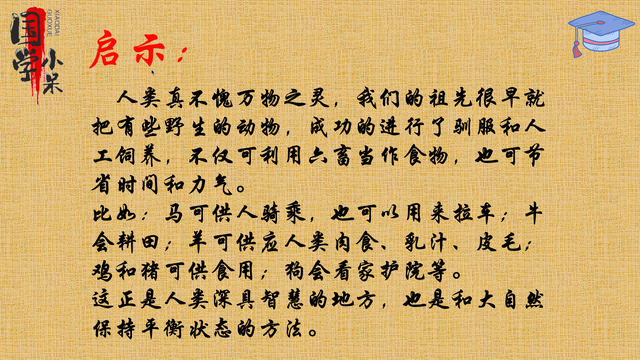 国学
小呆
XIAODAI
GUOXUE
启示：
人类真不愧万物之灵，我们的祖先很早就
把有些野生的动物，成功的进行了驯服和人
工饲养，不仅可利用六畜当作食物，也可节
省时间和力气。
比如：马可供人骑乘，也可以用来拉车；牛
会耕田；羊可供应人类肉食、乳汁、皮毛；
鸡和猪可供食用；狗会看家护院等。
这正是人类深具智慧的地方，也是和大自然
保持平衡状态的方法。